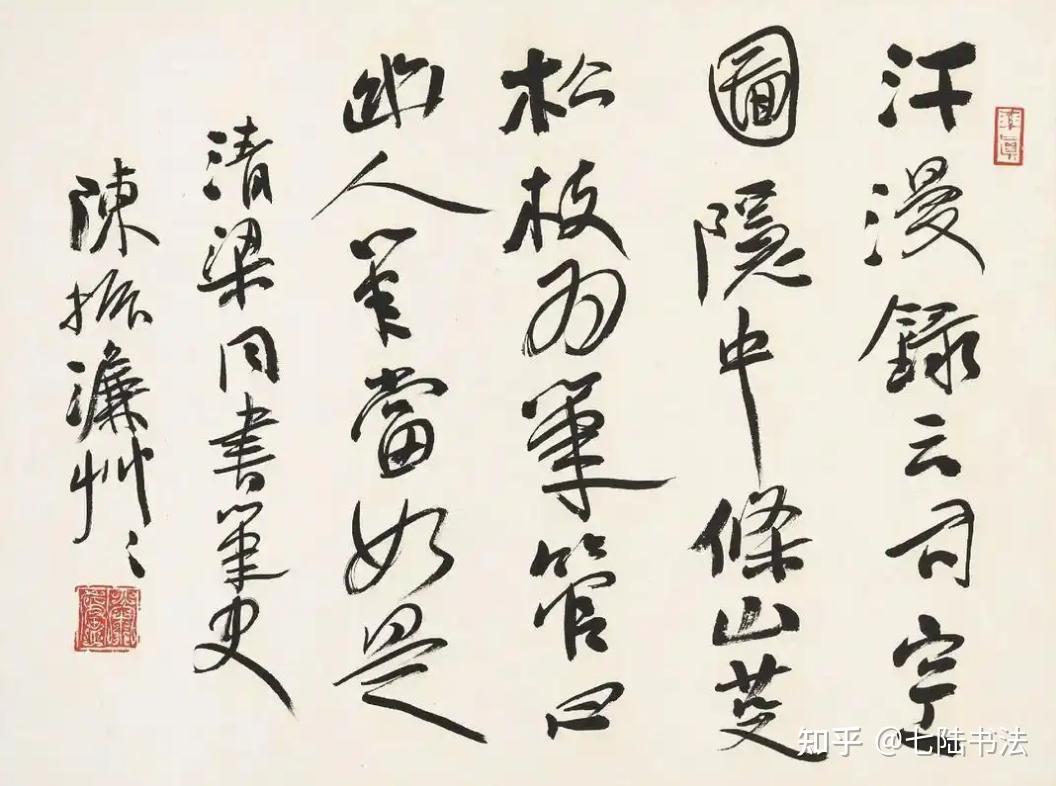 汗漫錄云司空
圖隱中條山芟
松枝為筆管曰
幽人筆當如是
清梁同書筆史
陳振濂艸〻
知乎 @七陆书法